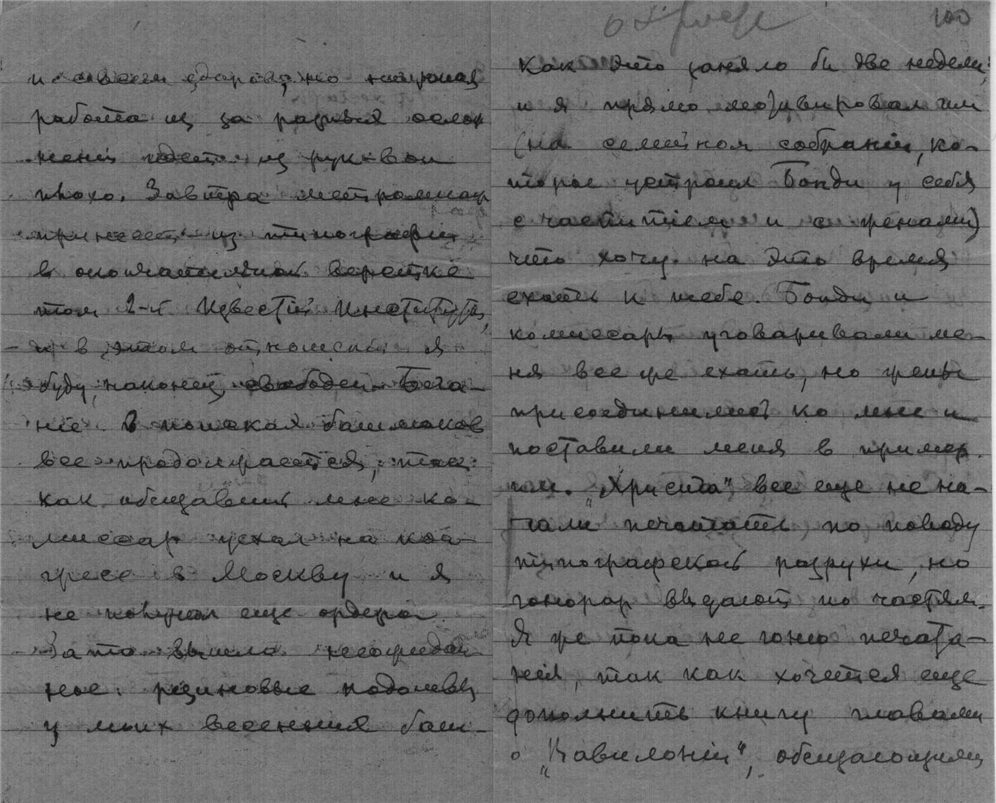 и совсем здоров, но научная
работа из за разных ослож
нений идет из рук вон
плохо. Завтра метранпаж
принесет из типографии
в окончательной верстке
том 2-й Известий Института,
и в этом отношении я
буду, наконец, свободен. Бега-
ние в поисках башмаков
все продолжается, так
как обещавший мне ко-
миссар уехал на кон-
гресс в Москву и я
не получил еще ордера
Зато вышло неожидан-
ное: резиновые подошвы
у моих весенних баш-
о Христе
100
как это заняло бы две недели,
и я прямо мотивировал им
(на семейном собрании, ко-
торое устроил Бонди у себя
с чаепитием и с женами)
что хочу на это время
ехать к тебе. Бонди и
комиссары уговаривали ме-
ня все же ехать, но жены
присоединились ко мне и
поставили меня в пример
им. „Христа" все еще не на-
чали печатать по поводу
типографской разрухи, но
гонорар выдают по частям.
Я же пока не гоню печата-
ния, так как хочется еще
дополнить книгу главами
о „Вавилонии", обещающими